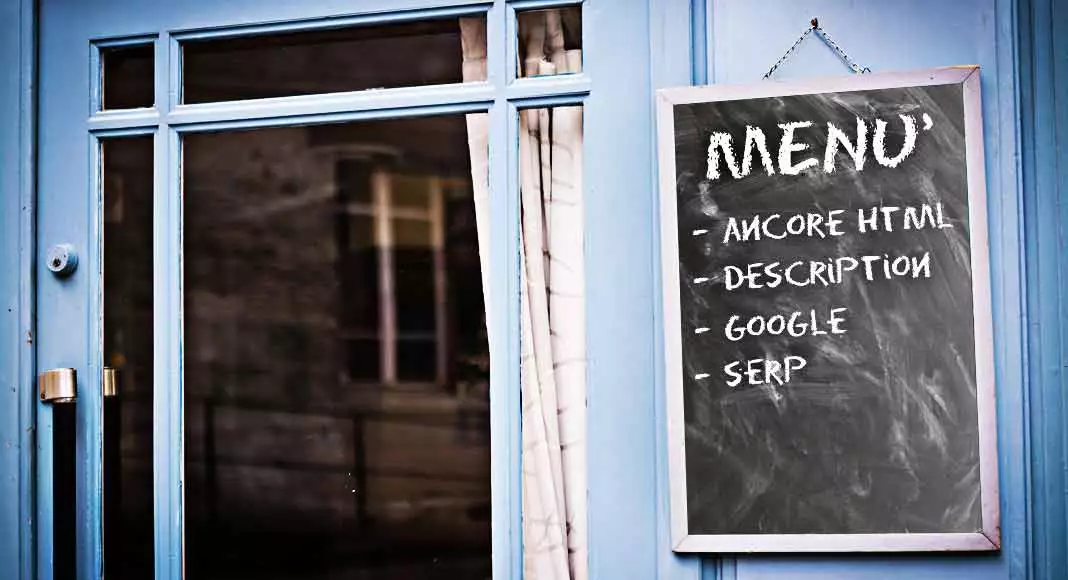 MENU'
- ANCORE HTML
- DESCRIPTION
- GOOGLE
- SERP